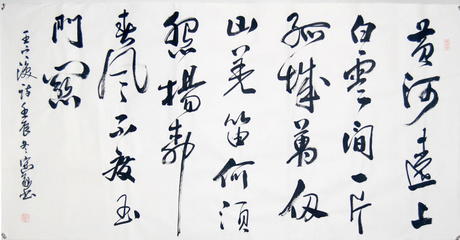 黄河遠上
白雲間一片
孤城萬仞
山羌笛何須
怨楊柳
春風不度玉
門關
王之渙詩壬辰冬